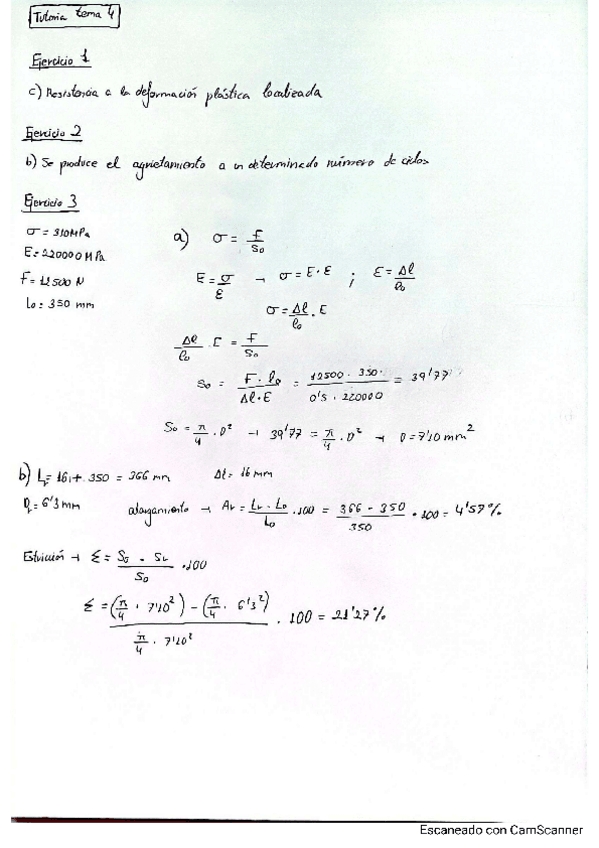 Tutoria tema 4
Ejercicio 1
c) Resistencia a la deformación plástica localizada
Ejercicio 2
b) Se produce el agrietamiento a un determinado número de ciclos
Ejercicio 3
σ = 310MPa
E = 220000 MPa
F = 12500 N
lo = 350 mm
a) σ = F/So
E = σ/ε → σ = E · ε ; ε = Δl/lo
σ = Δl/lo · E
Δl/lo · E = F/So
So = F · lo / Δl · E = 12500 · 350 / 0'5 · 220000 = 39'77
So = π/4 · D² → 39'77 = π/4 · D² → D = 7'10 mm²
b) = 16 + 350 = 366 mm Δl = 16 mm
= 6'3 mm alargamiento → Ar = Lr - Lo / Lo · 100 = 366 - 350 / 350 · 100 = 4'57%
Estricción → Σ = So - Sr / So · 100
Σ = (π/4 · 7'10²) - (π/4 · 6'3²) / π/4 · 7'10² · 100 = 21'27%
Escaneado con CamScanner